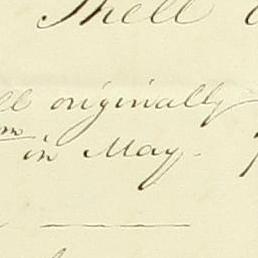 Shell
originally
in May.